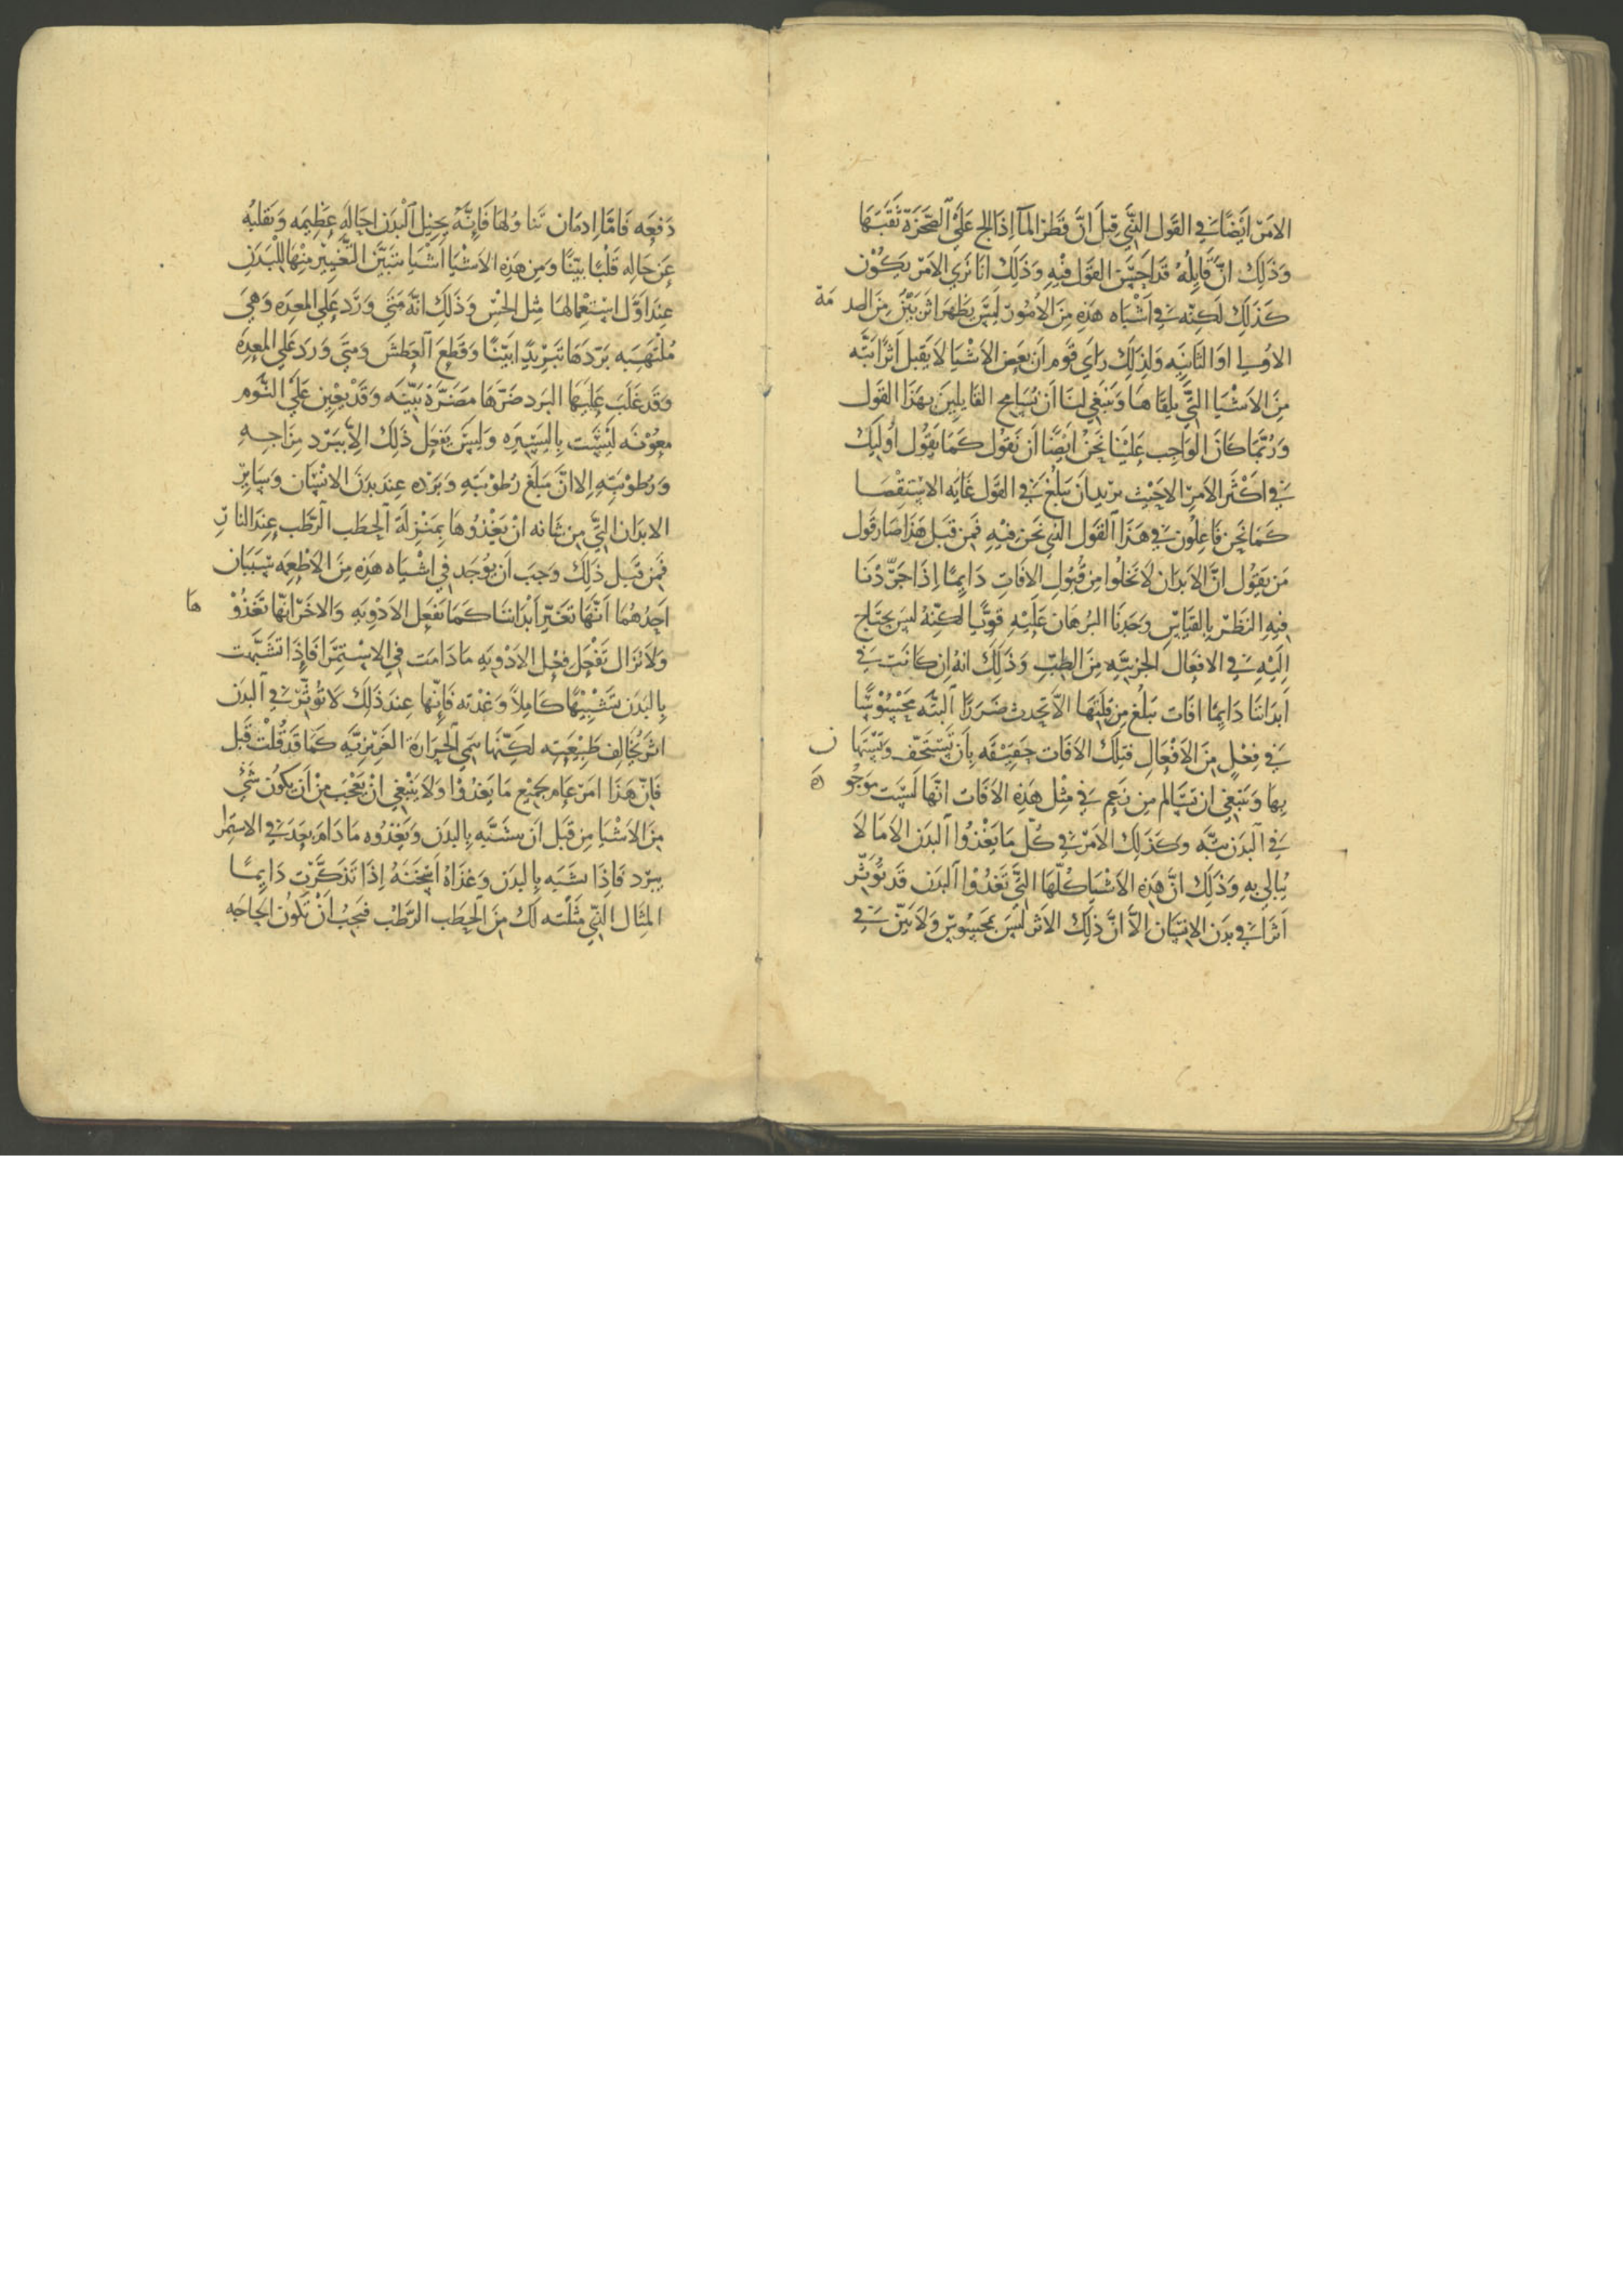 الامر ايضًا في القول الذي قيل ان قطر المآ اذا الح على الصخرة ثقبها
وذلك ان قايله قد احسن القول فيه وذلك انا نرى الامر يكون
كذلك لكنه في اشباه هذه من الامور ليس يظهر اثر بين من الصدمة
الاولى او الثانيه ولذلك راى قوم ان بعض الاشيا لا يقبل اثرًا بته
من الاشيا التي يلقاها وينبغي لنا ان نسامح القايلين بهذا القول
وربما كان الواجب علينا نحن ايضًا ان نقول كما يقول اوليك
في اكثر الامر الا حيث نريد ان نبلغ في القول غايه الاستقصا
كما نحن فاعلون في هذا القول الذي نحن فيه فمن قبل هذا صار قول
من يقول ان الابدان لا تخلوا من قبول الافات دايمًا اذا جردنا
فيه النظر بالقياس وجدنا البرهان عليه قويًا لكنه ليس يحتاج
اليه في الافعال الجزييه من الطب وذلك انه ان كانت في
ابداننا دايمًا افات تبلغ من قلتها الا تحدث ضررًا البته محسوسًا
في فعل من الافعال فتلك الافات حقيقه بان يستخف ويتهاون
بها وينبغي ان نسالم من زعم في مثل هذه الافات انها ليست موجوده
في البدن بته وكذلك الامر في كل ما يغذوا البدن الا ما لا
يبالى به وذلك ان هذه الاشيا كلها التي تغذوا البدن قد تؤثر
اثرًا في بدن الانسان الا ان ذلك الاثر ليس بمحسوس ولا بين في
دفعه فاما ادمان تناولها فانه يحيل البدن احاله عظيمه ويقلبه
عن حاله قلبًا بينًا ومن هذه الاشيا اشيا يتبين التغيير منها للبدن
عند اول استعمالها مثل الخس وذلك انه متى ورد على المعده وهي
ملتهبه بردها تبريدًا بينًا وقطع العطش ومتى ورد على المعده
وقد غلب عليها البرد ضرها مضرة بينه وقد يعين على النوم
معونه ليست باليسيره وليس يفعل ذلك الا ببرد مزاجه
ورطوبته الا ان مبلغ رطوبته وبرده عند بدن الانسان وساير
الابدان التي من شانه ان يغذوها بمنزلة الحطب الرطب عند النار
فمن قبل ذلك وجب ان يوجد في اشباه هذه من الاطعمه سببان
احدهما انها تغير ابداننا كما تفعل الادويه والاخر انها تغذوها
ولا تزال تفعل فعل الادويه ما دامت في الاستمرا فاذا تشبهت
بالبدن تشبيهًا كاملًا وغذته فانها عند ذلك لا تؤثر في البدن
اثر يخالف طبيعته لكنها تنمي الحرارة الغريزيه كما قد قلت قبل
فان هذا امر عام بجميع ما يغذوا ولا ينبغي ان يعجب من ان يكون شئ
من الاشيا من قبل ان يشبه بالبدن ويغذوه ما دام بعد في الاستمرا
يبرد فاذا شبه بالبدن وغذاه اسخنه اذا تذكرت دايمًا
المثال الذي مثلته لك من الحطب الرطب فيجب ان تكون الحاجه